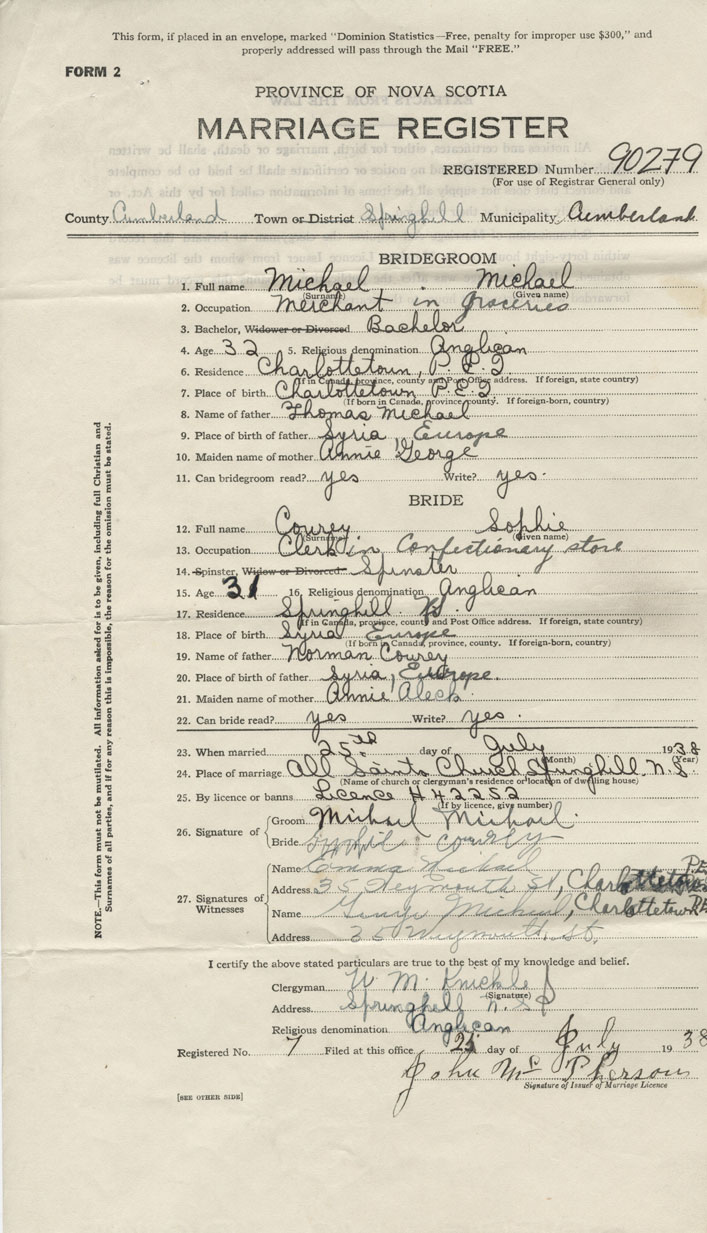 This form, if placed in an envelope, marked "Dominion Statistics—Free, penalty for improper use $300," and
properly addressed will pass through the Mail "FREE."
FORM 2
PROVINCE OF NOVA SCOTIA
MARRIAGE REGISTER
REGISTERED Number 90279
(For use of Registrar General only)
County Cumberland Town or District Springhill Municipality Cumberland
BRIDEGROOM
1. Full name Michael Michael
(Surname) (Given name)
2. Occupation Merchant in groceries
3. Bachelor, Widower or Divorced Bachelor
4. Age 32 5. Religious denomination Anglican
6. Residence Charlottetown, P.E.I.
(If in Canada, province, county and Post Office address. If foreign, state country)
7. Place of birth Charlottetown P.E.I.
(If born in Canada, province, county. If foreign-born, country)
8. Name of father Thomas Michael
9. Place of birth of father Syria, Europe
10. Maiden name of mother Annie George
11. Can bridegroom read? yes Write? yes.
BRIDE
12. Full name Courey Sophie
(Surname) (Given name)
13. Occupation Clerk in Confectionary store
14. Spinster, Widow or Divorced Spinster
15. Age 31 16. Religious denomination Anglican
17. Residence Springhill
(If in Canada, province, county and Post Office address. If foreign, state country)
18. Place of birth Syria Europe
(If born in Canada, province, county. If foreign-born, country)
19. Name of father Norman Courey
20. Place of birth of father Syria, Europe.
21. Maiden name of mother Annie Aleck
22. Can bride read? yes Write? yes.
23. When married 25th day of July 1938
(Month) (Year)
24. Place of marriage All Saints Church Springhill. N.S.
(Name of church or clergyman's residence or location of dwelling house)
25. By licence or banns Licence H42252
(If by licence, give number)
26. Signature of Groom Michael Michael.
Bride Sophie Courey
27. Signatures of Witnesses Name Emma Michael
Address 35 Weymouth St, Charlottetown P.E.
Name George Michael, Charlottetown P.E.
Address 35 Weymouth St.
I certify the above stated particulars are true to the best of my knowledge and belief.
Clergyman W M. Knickle
(Signature)
Address Springhill N.S.
Religious denomination Anglican
Registered No. 7 Filed at this office 25 day of July 1938
John McPherson
Signature of Issuer of Marriage Licence
[SEE OTHER SIDE]
NOTE.—This form must not be mutilated. All information asked for is to be given, including full Christian and
Surnames of all parties, and if for any reason this is impossible, the reason for the omission must be stated.